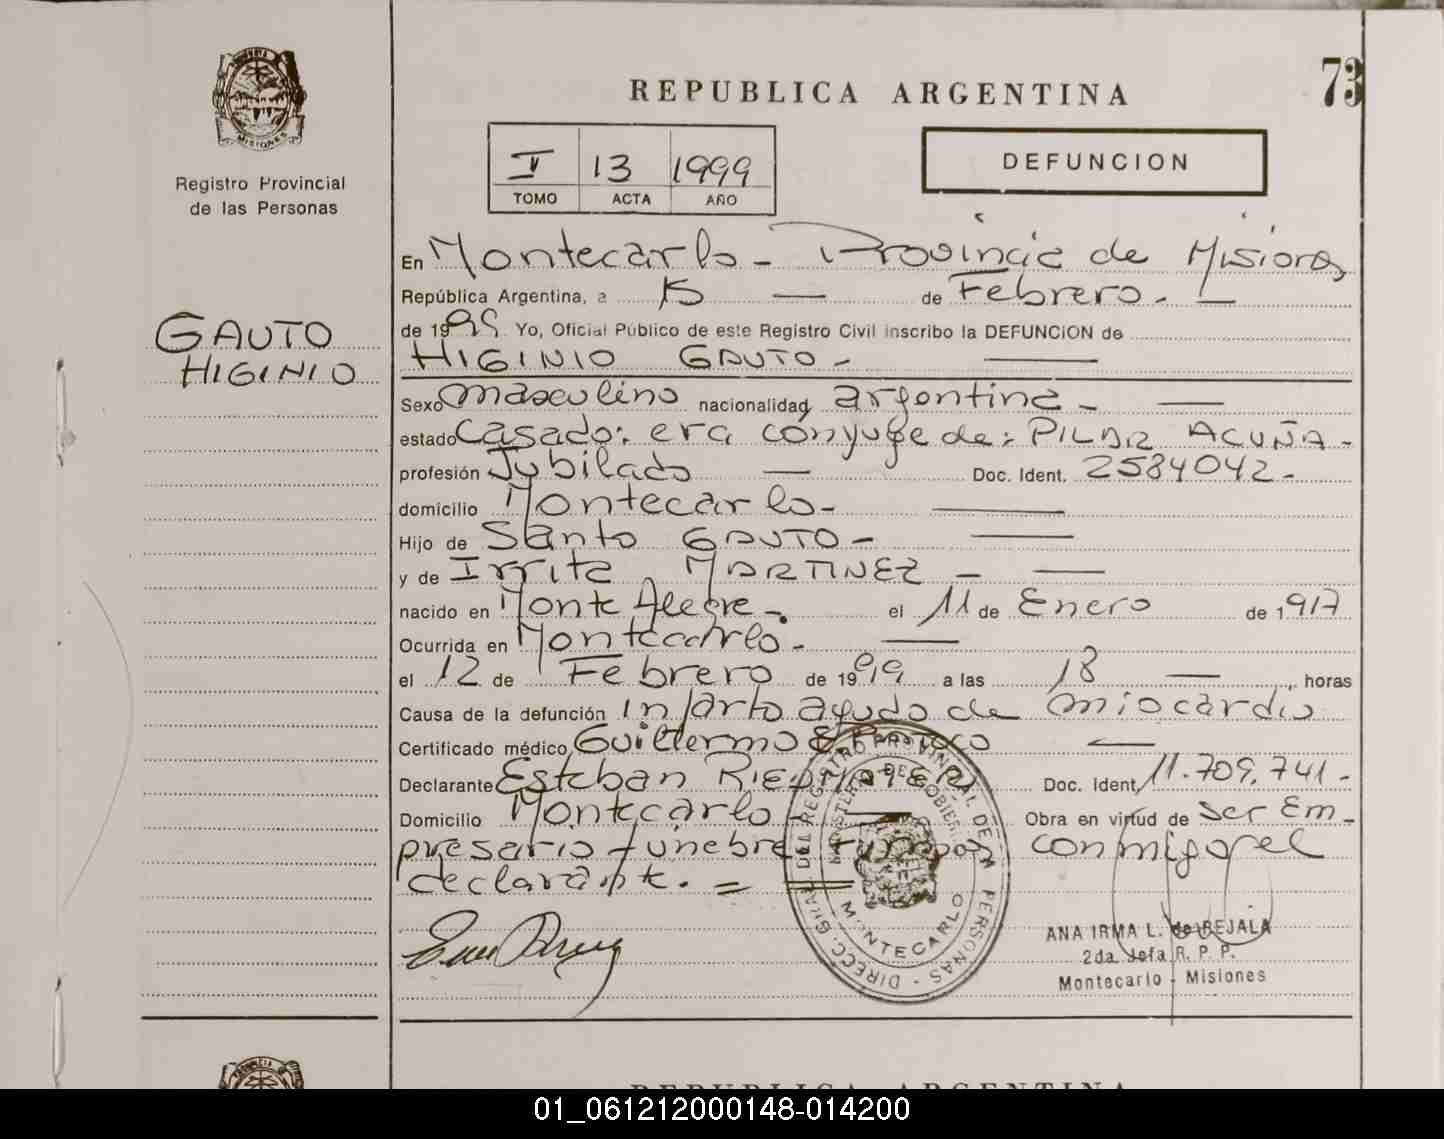 73
REPUBLICA ARGENTINA
DEFUNCION
I 13 1999
TOMO ACTA AÑO
MISIONES
Registro Provincial
de las Personas
GAUTO
HIGINIO
En Montecarlo - Provincia de Misiones
República Argentina, a 15 — de Febrero. —
de 1999 Yo, Oficial Público de este Registro Civil inscribo la DEFUNCION de
HIGINIO GAUTO - —
Sexo masculino nacionalidad argentina - —
estado Casado: era cónyuge de: PILAR ACUÑA -
profesión Jubilado — Doc. Ident. 2584042 -
domicilio Montecarlo - —
Hijo de Santo GAUTO - —
y de Irrita MARTINEZ - —
nacido en Monte Alegre - el 11 de Enero de 1917
Ocurrida en Montecarlo - —
el 12 de Febrero de 1999 a las 18 — horas
Causa de la defunción infarto agudo de miocardio
Certificado médico Guillermo —
Declarante Esteban Doc. Ident. 11.709.741 -
Domicilio Montecarlo - Obra en virtud de ser Em-
presario fúnebre conmigo el
declarante. =
DIRECC. GRAL. DEL REGISTRO PROVINCIAL DE PERSONAS
MINISTERIO DE GOBIERNO
MONTECARLO
ANA IRMA L. de REJALA
2da. Jefa R. P. P.
Montecarlo - Misiones
REPUBLICA ARGENTINA
01_061212000148-014200